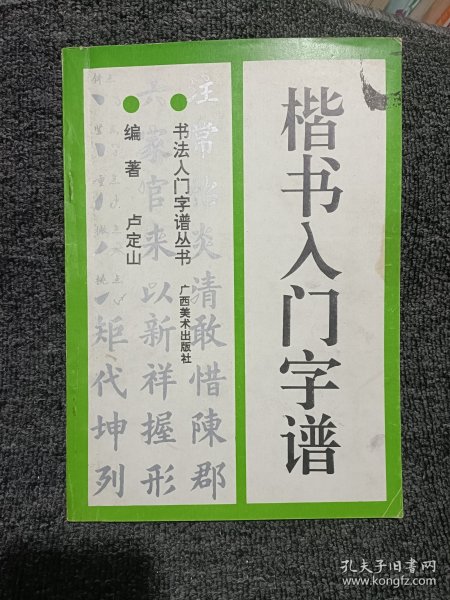 楷书入门字谱
书法入门字谱丛书
广西美术出版社
编著 卢定山
汪常治炎清敢惜陳郡
六家官来以新祥握形
矩代坤列
孔夫子旧书网
www.kongfz.com